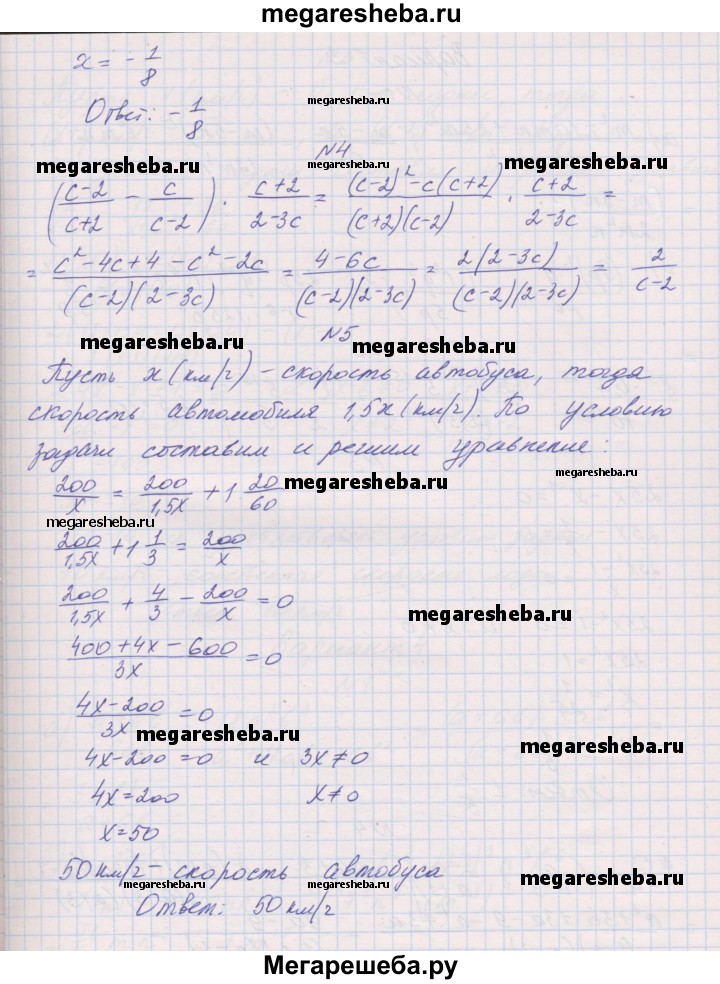 megaresheba.ru
x = - 1/8
Ответ: - 1/8
megaresheba.ru
N4
megaresheba.ru
megaresheba.ru
((c-2)/(c+2) - c/(c-2)) · (c+2)/(2-3c) = ((c-2)² - c(c+2))/((c+2)(c-2)) · (c+2)/(2-3c) =
= (c² - 4c + 4 - c² - 2c)/((c-2)(2-3c)) = (4-6c)/((c-2)(2-3c)) = 2(2-3c)/((c-2)(2-3c)) = 2/(c-2)
N5
megaresheba.ru
megaresheba.ru
Пусть x (км/г) - скорость автобуса, тогда
скорость автомобиля 1,5x (км/г). По условию
задачи составим и решим уравнение:
200/x = 200/1,5x + 1 20/60
megaresheba.ru
megaresheba.ru
megaresheba.ru
200/1,5x + 1 1/3 = 200/x
200/1,5x + 4/3 - 200/x = 0
megaresheba.ru
(400 + 4x - 600)/3x = 0
(4x - 200)/3x = 0
megaresheba.ru
megaresheba.ru
4x - 200 = 0 и 3x ≠ 0
4x = 200 x ≠ 0
x = 50
50 км/г - скорость автобуса
megaresheba.ru
megaresheba.ru
megaresheba.ru
Ответ: 50 км/г
Мегарешеба.ру